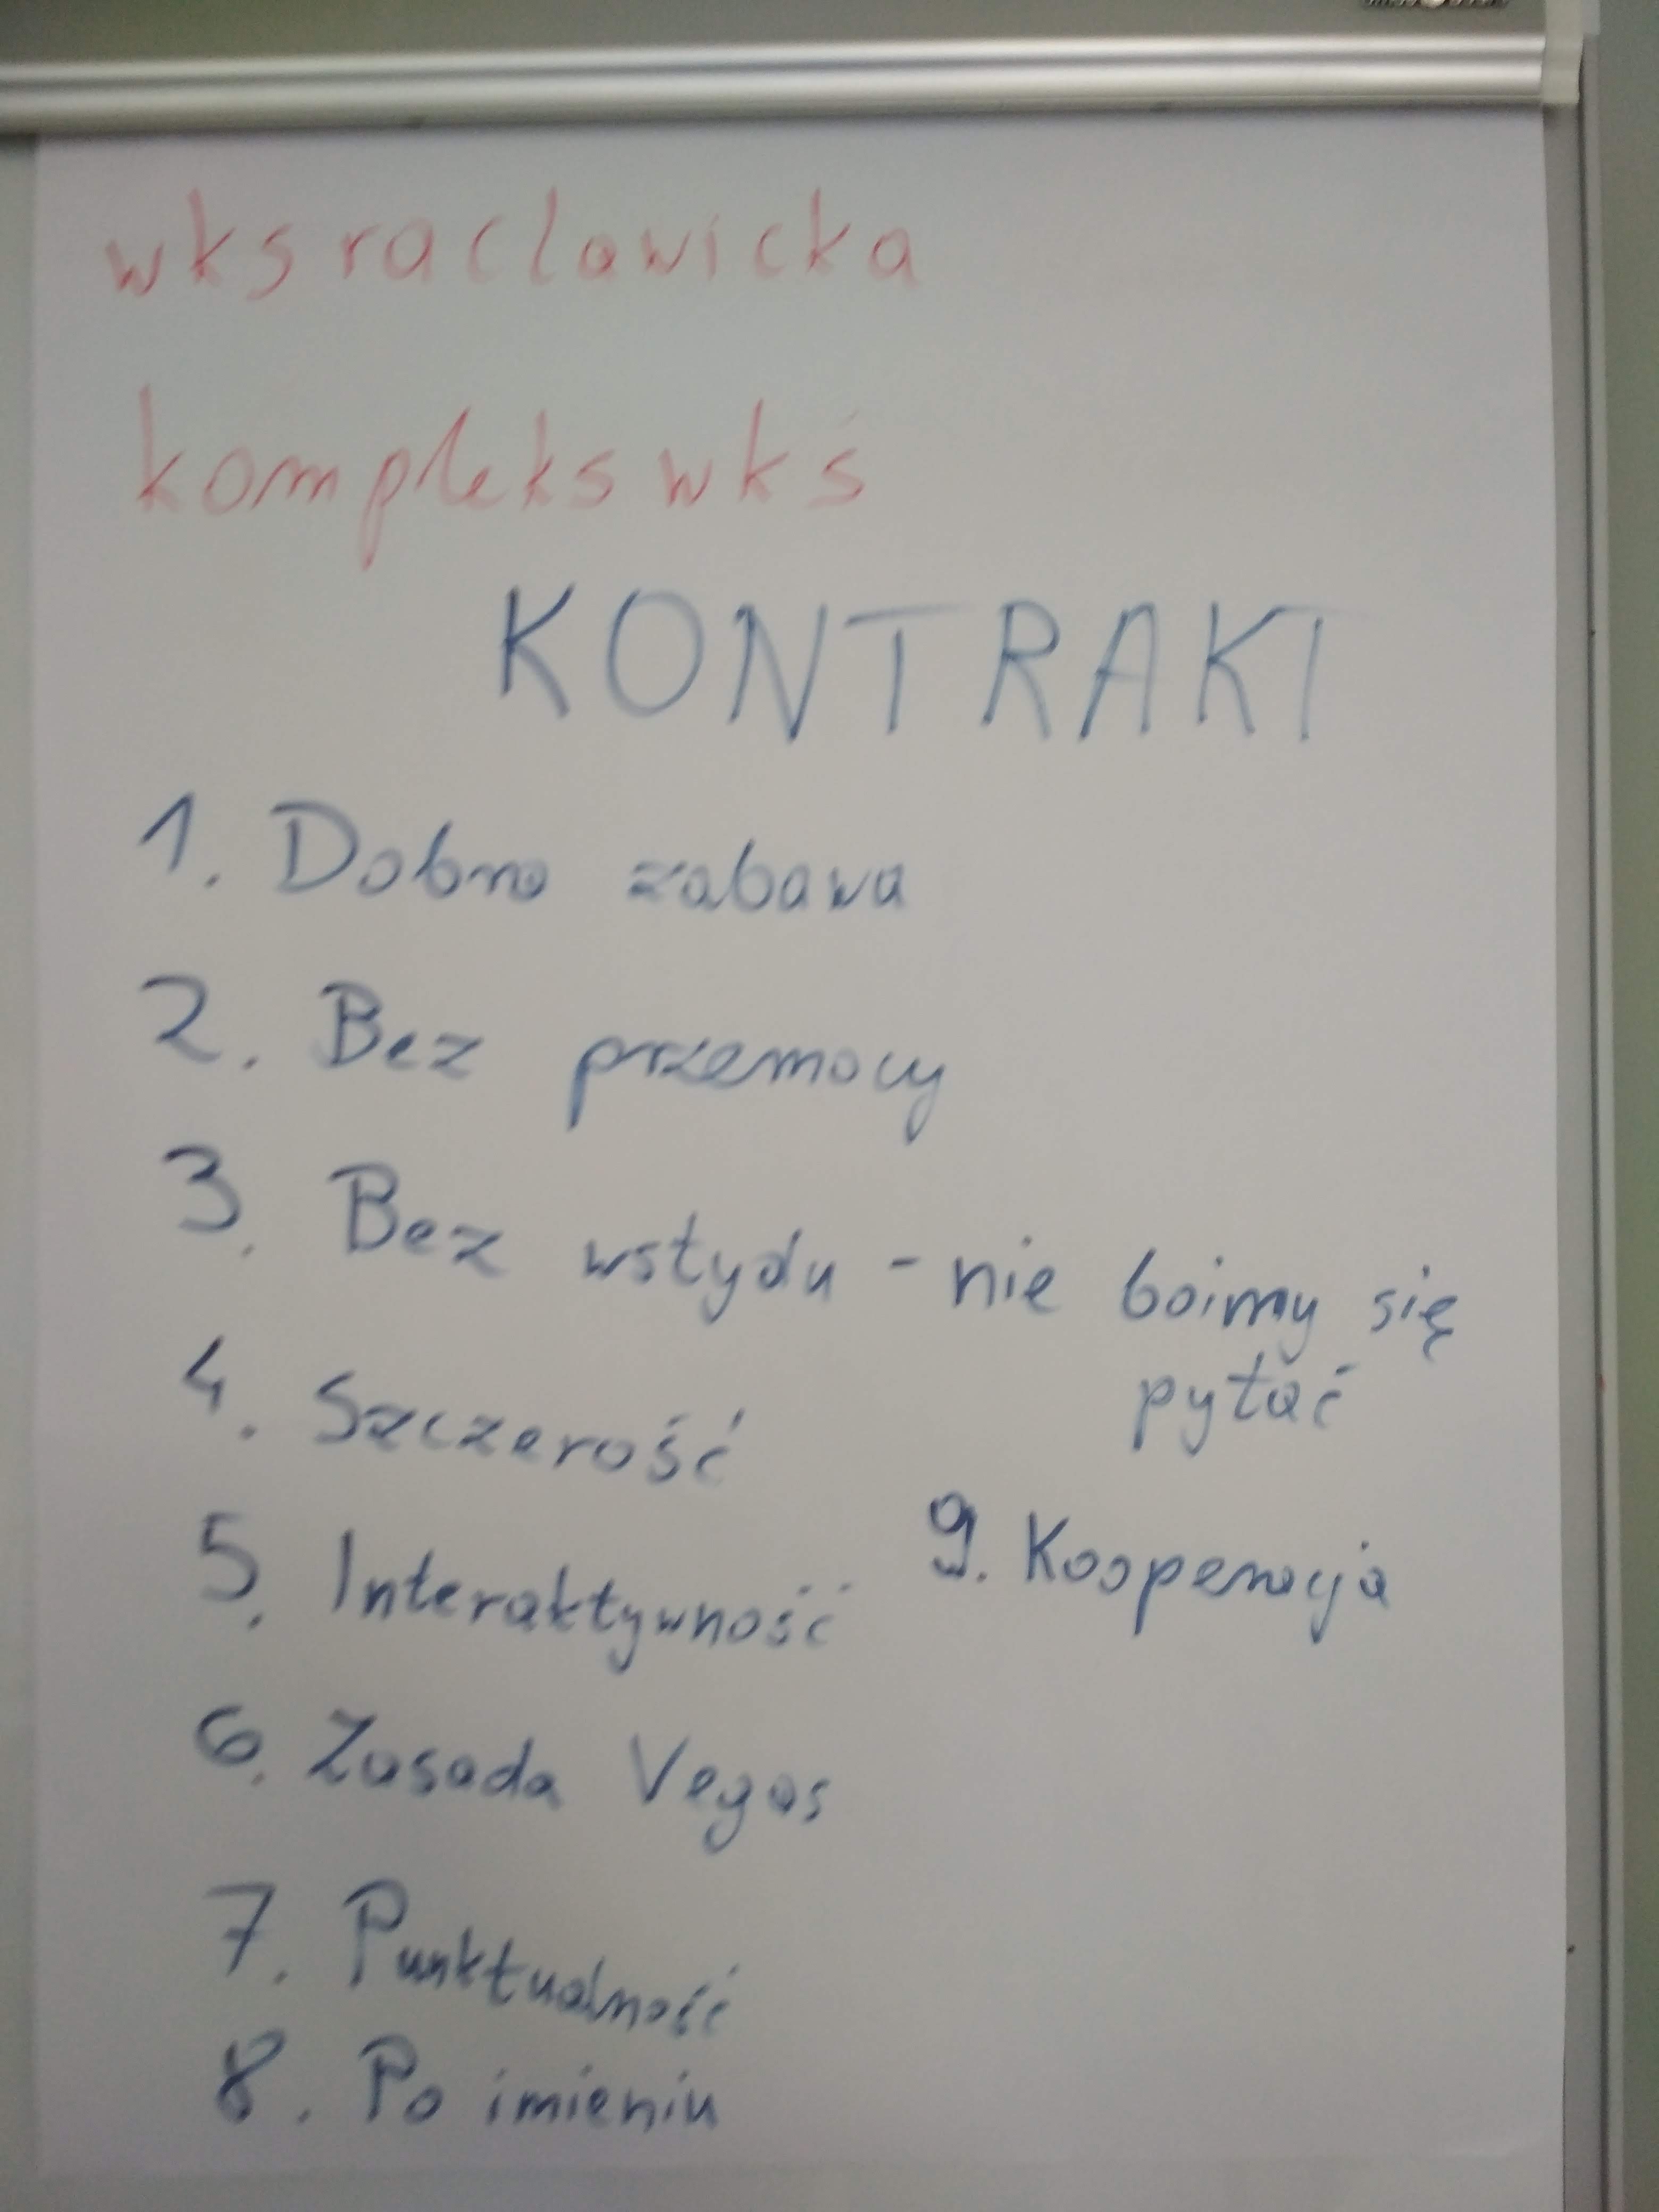 wksraclawicka
komplekswkś
KONTRAKT
1. Dobra zabawa
2. Bez przemocy
3. Bez wstydu - nie boimy się
pytać
4. Szczerość
5. Interaktywność
6. Zasada Vegas
7. Punktualność
8. Po imieniu
9. Kooperacja